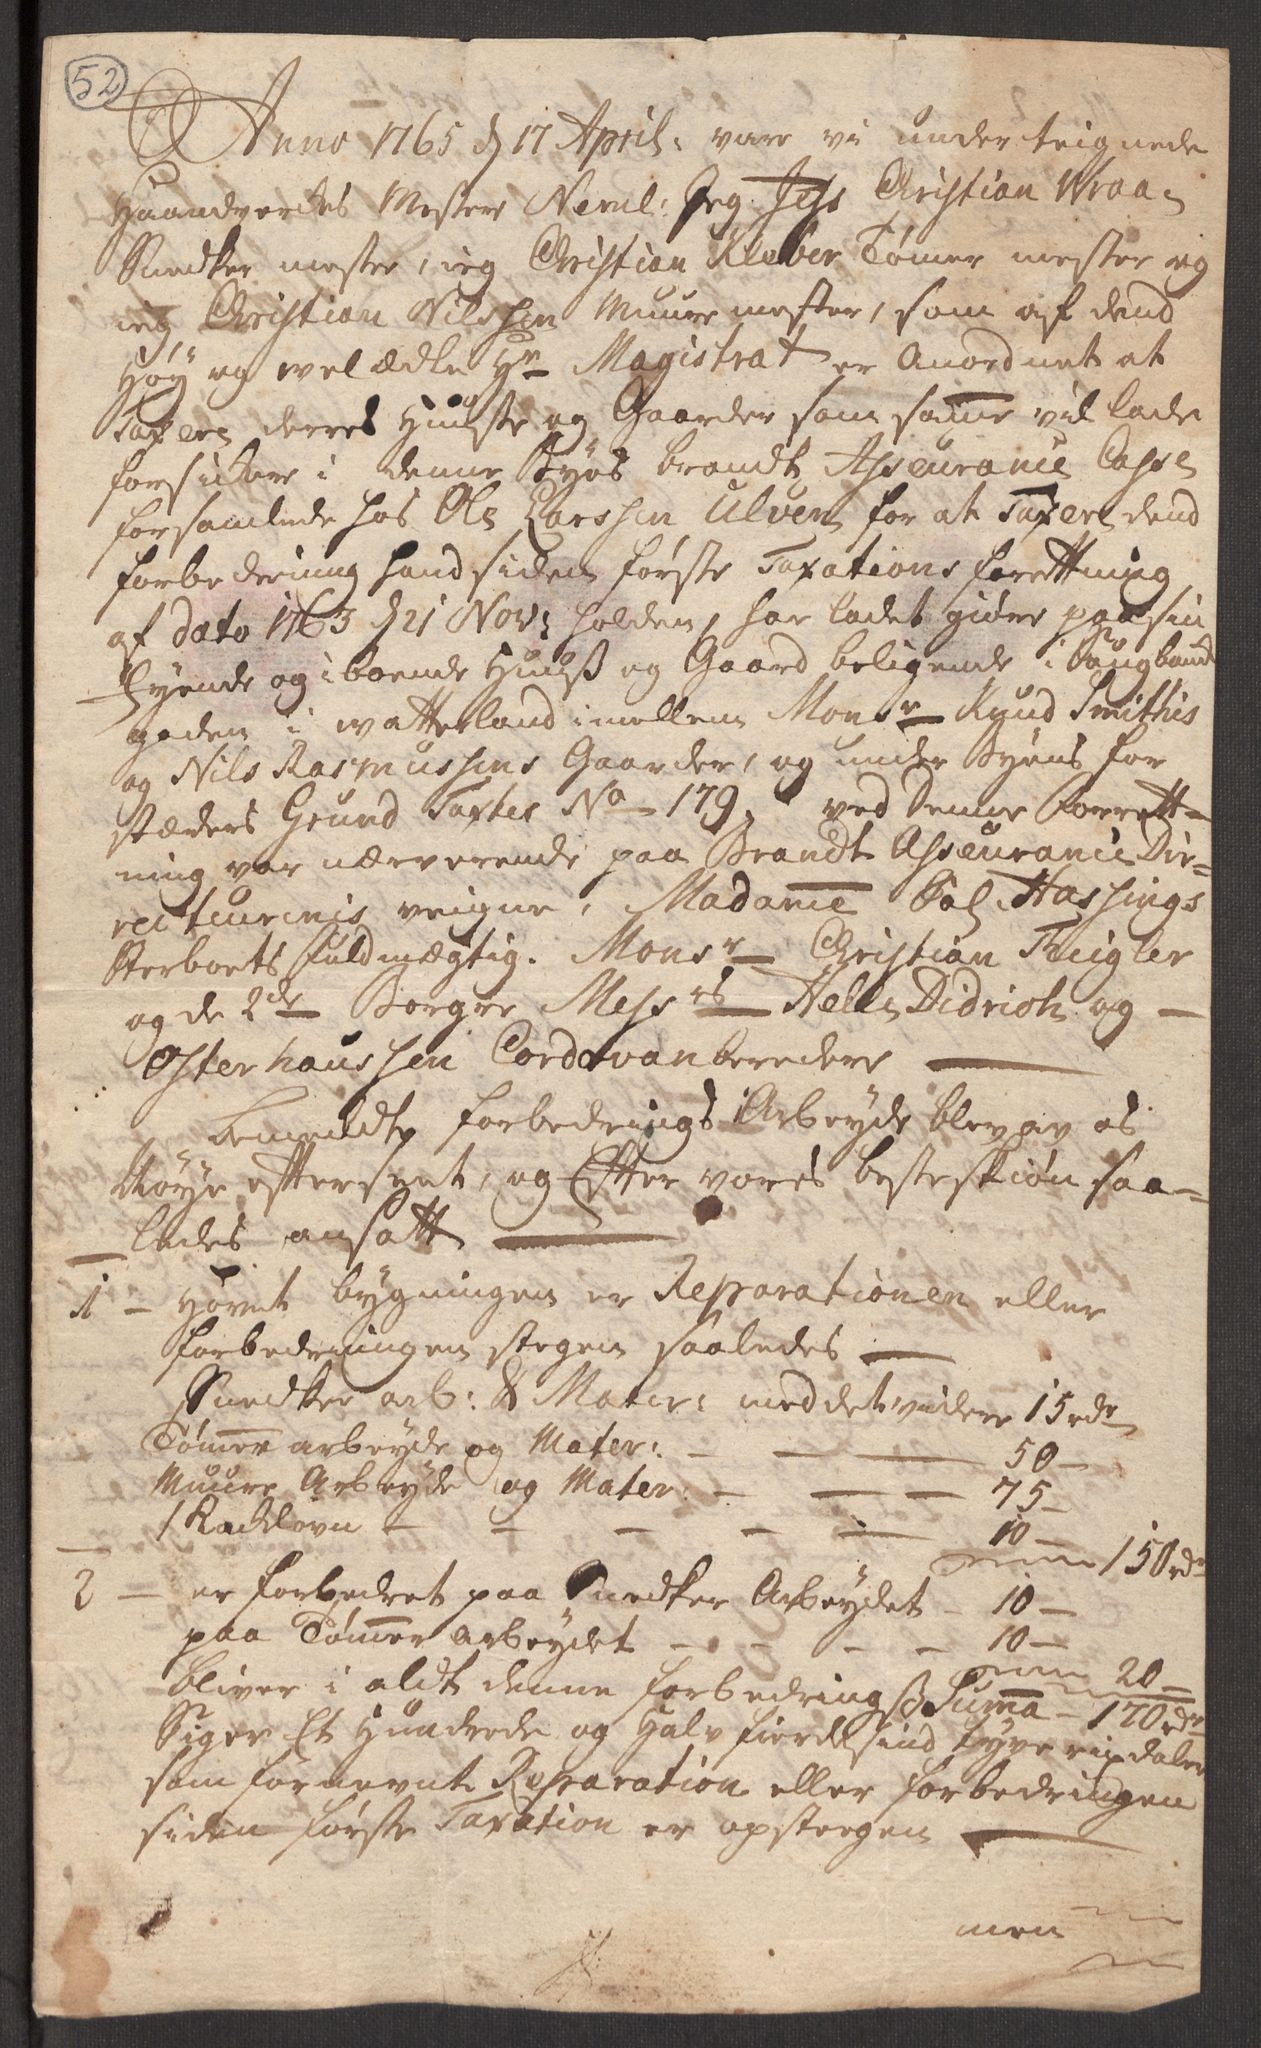 52
Anno 1765 d 17 April: vare vi underteignede
Haandverchs Mestere Neml: Jeg Jess Christian Wraa
Snedker mester, ieg Christian Kleber Tømer mester og
ieg Christian Nilssen Muure mester, som af dend
Høy og velædle Hr Magistrat er Anordnet at
Taxere derres Huuse og Gaarder som samme vil lade
forsickre i denne Byes brandt Asseurance Casse
forsamlede hos Ole Larssen Ulven for at Taxere dend
forbedering hand siden første Taxations forettning
af dato 1763 d 21 Nov: holden, har ladet giøre paa sin
Eyende og iboende Huuss og Gaard beligende i Saugbanch
gaden i Watterland imellem Monsr Knud Smithis
og Nils Rasmussens Gaarder, og under Byens for
stæders Grund Taxtes No 179, ved Denne Forrett-
ning var nærverende paa Brandt Asseurance Dir-
recteurenis veigne, Madame Sal. Hassings
Sterboets fuldmægtig. Monsr Christian Zeigler
og de 2de Borgere Messrs Aelle Didrich og
Osterhaussen Cordovanberedere
bemeldte forbedrings Arbeyde blev av os
Nøye efterseet, og Efter vores beste skiøn saa-
ledes ansatt
1 - Hovet bygningen er Reparationen eller
forbedringen stegen saaledes
Snedker arb: & Mater: med det videre 15 rdr
Tømer arbeyde og Mater: - 50 -
Muure Arbeyde og Mater: - 75 -
1 Kackelovn - 10 -
150 rdr
2 - er forbedret paa Snedker Arbeydet - 10 -
paa Tømer arbeydet - 10 -
20 -
bliver i aldt denne forbedringss Summa - 170 rdr
Siger Et Hundrede og Halv fierdesind tyve rixdaler
som fornevnte Reparation eller forbedringen
siden første Taxation er opsteegen
men